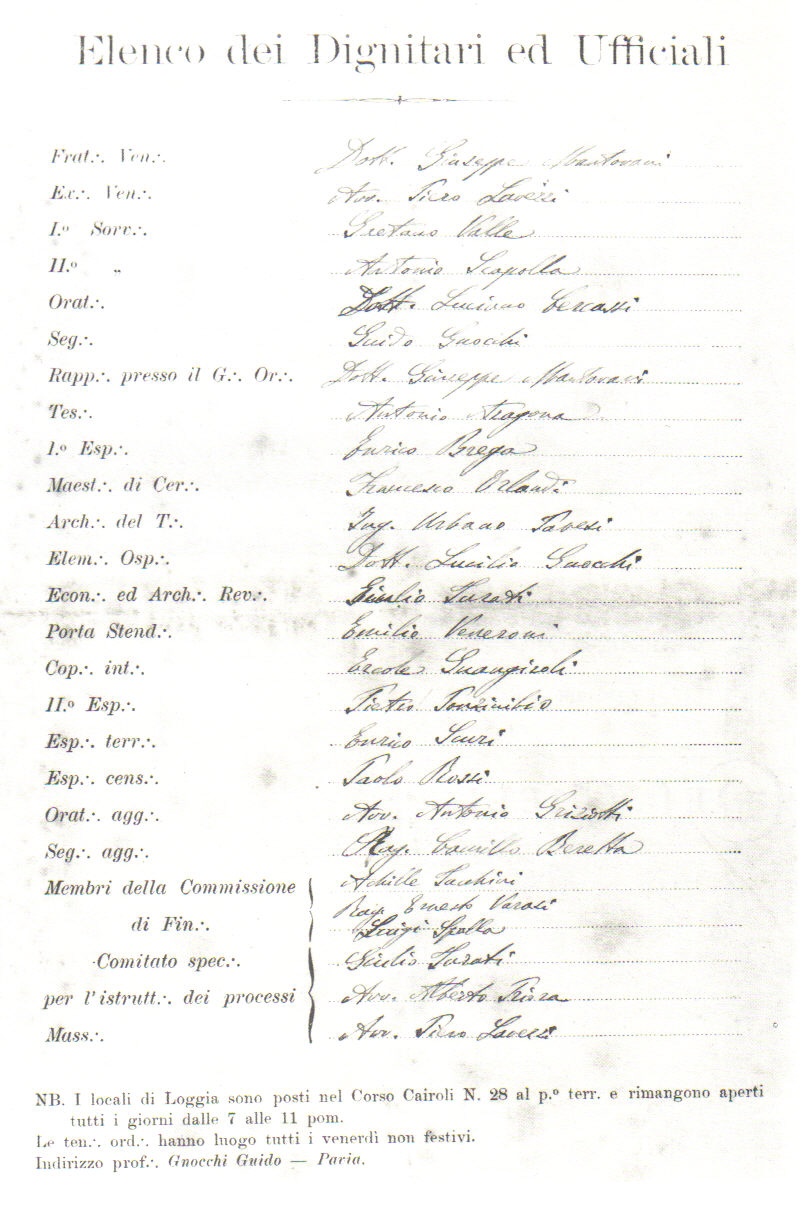 Elenco dei Dignitari ed Ufficiali
Frat∴ Ven∴ Dott. Giuseppe Mantovani
Ex∴ Ven∴ Avv. Piero Lavezzi
I.º Sorv∴ Gaetano Valle
II.º „ Antonio Scapolla
Orat∴ Dott. Luciano
Seg∴ Guido Gnocchi
Rapp∴ presso il G∴ Or∴ Dott. Giuseppe Mantovani
Tes∴ Antonio Aragona
1.º Esp∴ Enrico Brega
Maest∴ di Cer∴ Francesco Orlandi
Arch∴ del T∴ Ing. Urbano Pavesi
Elem∴ Osp∴ Dott. Lucilio Gnocchi
Econ∴ ed Arch∴ Rev∴ Giulio
Porta Stend∴ Emilio Veneroni
Cop∴ int∴ Ercole
II.º Esp∴ Pietro
Esp∴ terr∴ Enrico
Esp∴ cens∴ Paolo Rossi
Orat∴ agg∴ Avv. Antonio Griziotti
Seg∴ agg∴ Rag. Camillo Beretta
Membri della Commissione Achille Sacchini
di Fin∴ Rag. Ernesto Varasi
Luigi Spolla
Comitato spec∴ Giulio
per l'istrutt∴ dei processi Avv. Alberto
Mass∴ Avv. Piero Lavezzi
NB. I locali di Loggia sono posti nel Corso Cairoli N. 28 al p.º terr. e rimangono aperti
tutti i giorni dalle 7 alle 11 pom.
Le ten∴ ord∴ hanno luogo tutti i venerdì non festivi.
Indirizzo prof∴ Gnocchi Guido — Pavia.